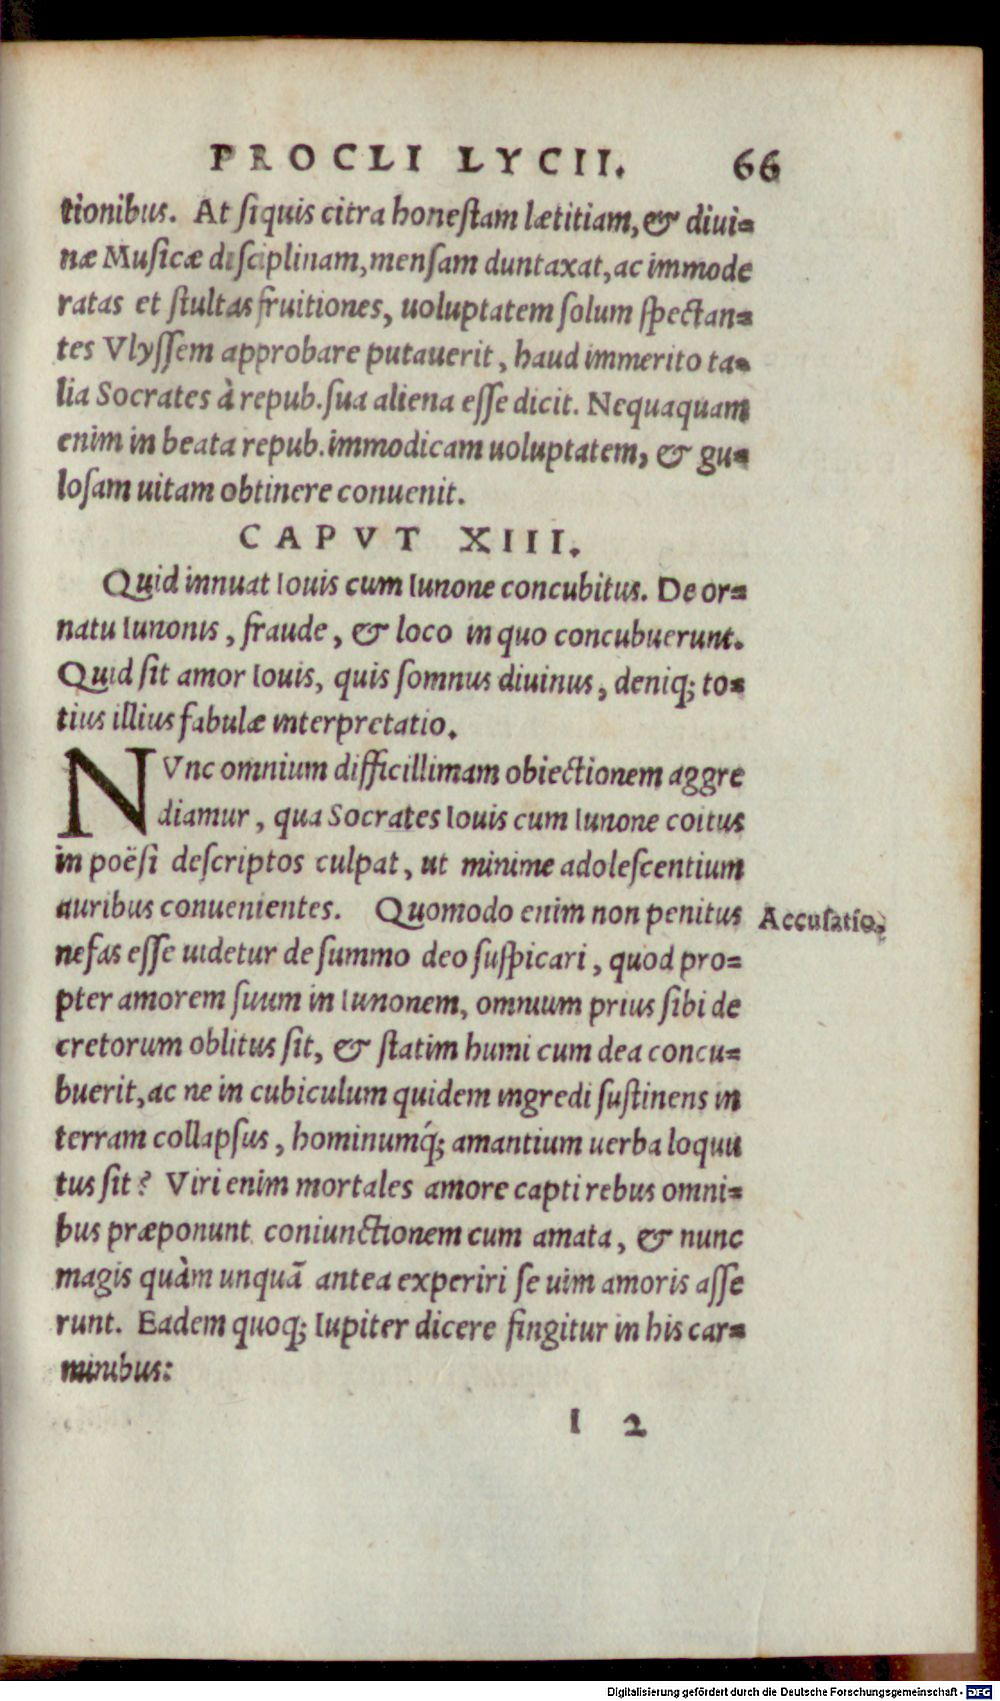 PROCLI LYCII. 66
tionibus. At siquis citra honestam lætitiam, & diui=
næ Musicæ disciplinam, mensam duntaxat, ac immode
ratas et stultas fruitiones, uoluptatem solum spectan=
tes Vlyssem approbare putauerit, haud immerito ta=
lia Socrates à repub. sua aliena esse dicit. Nequaquam
enim in beata repub. immodicam uoluptatem, & gu=
losam uitam obtinere conuenit.
CAPVT XIII.
Quid innuat Iouis cum Iunone concubitus. De or=
natu Iunonis, fraude, & loco in quo concubuerunt.
Quid sit amor Iouis, quis somnus diuinus, deniq; to=
tius illius fabulæ interpretatio.
NVnc omnium difficillimam obiectionem aggre
diamur, qua Socrates Iouis cum Iunone coitus
in poësi descriptos culpat, ut minime adolescentium
auribus conuenientes. Quomodo enim non penitus
Accusatio.
nefas esse uidetur de summo deo suspicari, quod pro=
pter amorem suum in Iunonem, omnium prius sibi de
cretorum oblitus sit, & statim humi cum dea concu=
buerit, ac ne in cubiculum quidem ingredi sustinens in
terram collapsus, hominumq́; amantium uerba loquu
tus sit? Viri enim mortales amore capti rebus omni=
bus præponunt coniunctionem cum amata, & nunc
magis quàm unquā antea experiri se uim amoris asse
runt. Eadem quoq; Iupiter dicere fingitur in his car=
minibus:
I 2
Digitalisierung gefördert durch die Deutsche Forschungsgemeinschaft - DFG